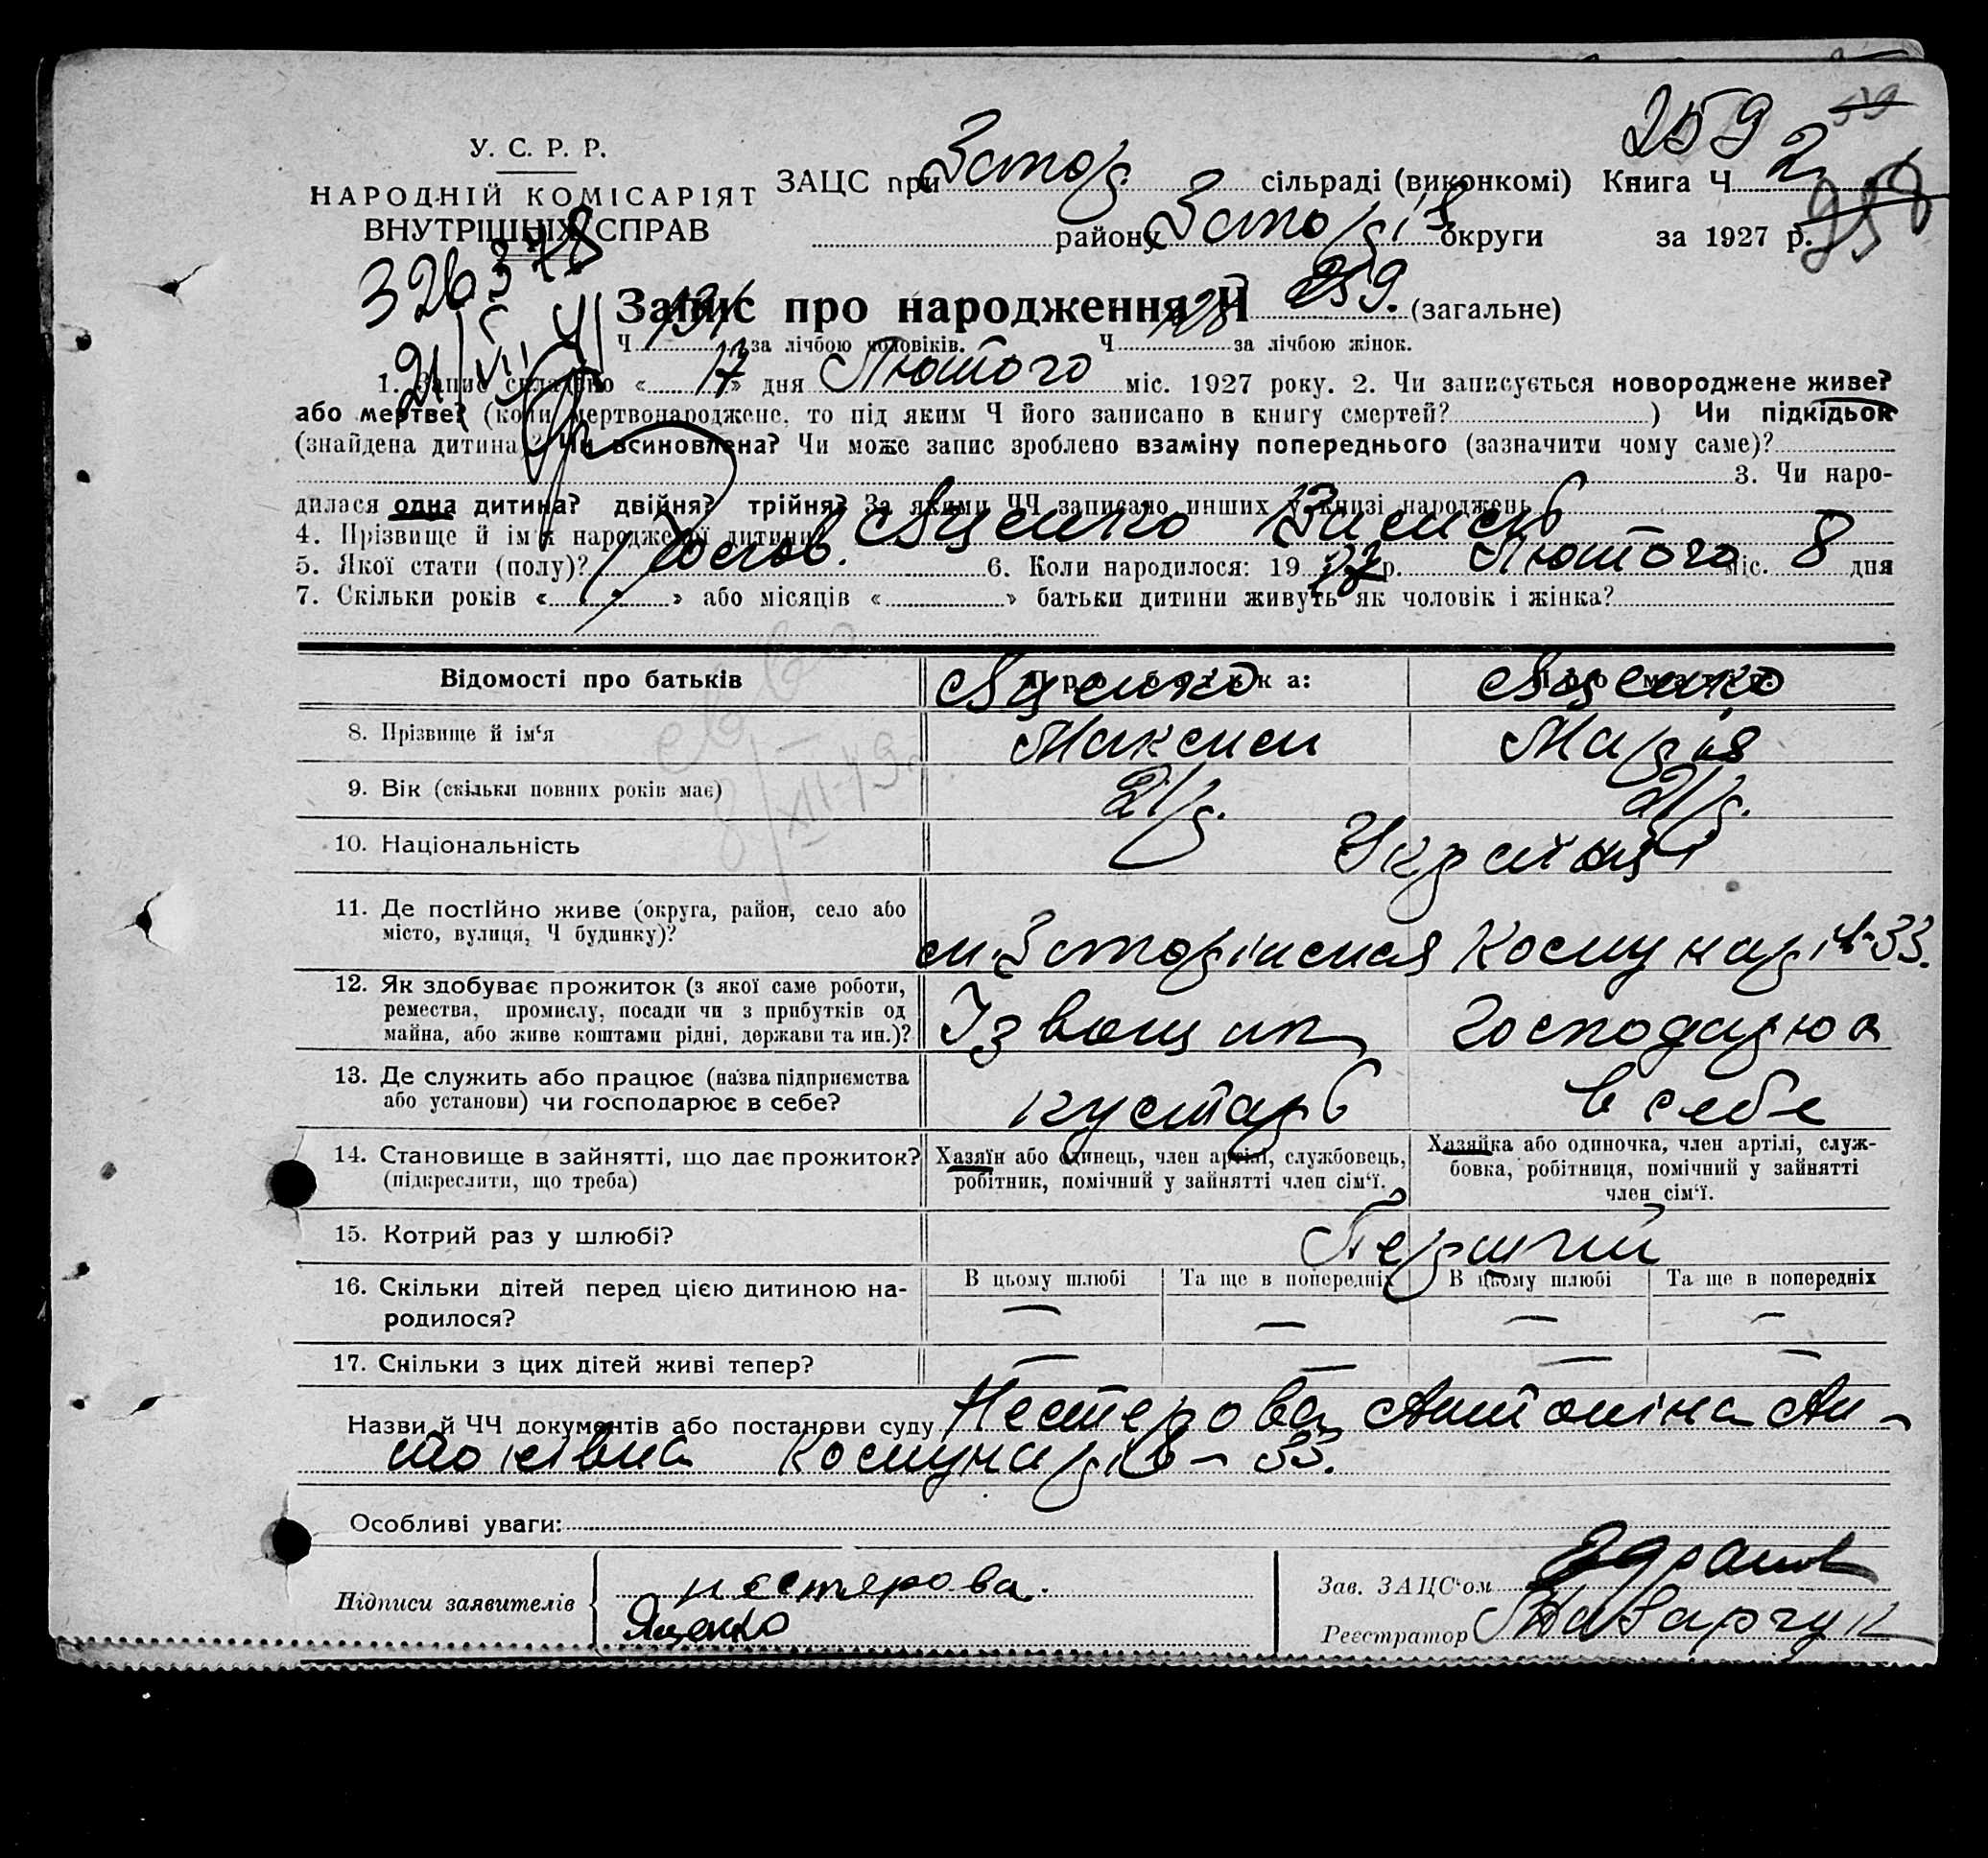 259
У. С. Р. Р.
НАРОДНІЙ КОМІСАРІЯТ
ВНУТРІШНІХ СПРАВ
ЗАЦС при Запор. сільраді (виконкомі) Книга Ч. 2
району Запоріз округи за 1927 р.
326378
Запис про народження Ч 259. (загальне)
Ч 131 за лічбою чоловіків. Ч 128 за лічбою жінок.
1. Запис складено « 17 » дня Лютого міс. 1927 року. 2. Чи записується новороджене живе?
або мертве? (коли мертвонароджене, то під яким Ч його записано в книгу смертей? ) Чи підкідьок
(знайдена дитина)? Чи всиновлена? Чи може запис зроблено взаміну попереднього (зазначити чому саме)?
3. Чи наро-
дилася одна дитина? двійня? трійня? За якими ЧЧ записано инших у книзі народжень
4. Прізвище й ім'я народженої дитини Яценко Василь
5. Якої стати (полу)? Чолов. 6. Коли народилося: 19 27 р. Лютого міс. 8 дня
7. Скільки років « » або місяців « » батьки дитини живуть як чоловік і жінка?
Відомості про батьків Про батька: Про матір:
Яценко Яценко
8. Прізвище й ім'я Максим Марія
9. Вік (скільки повних років має) 21 р. 21 р.
10. Національність Українці
11. Де постійно живе (округа, район, село або
місто, вулиця, Ч будинку)? м. Запоріжжя Комунарів-33.
12. Як здобуває прожиток (з якої саме роботи,
ремества, промислу, посади чи з прибутків од
майна, або живе коштами рідні, держави та ин.)? Ізвощик Господарює
13. Де служить або працює (назва підприємства
або установи) чи господарює в себе? кустарь в себе
14. Становище в зайнятті, що дає прожиток?
(підкреслити, що треба)
Хазяїн або одинець, член артілі, службовець,
робітник, помічний у зайнятті член сім'ї.
Хазяйка або одиночка, член артілі, служ-
бовка, робітниця, помічний у зайнятті
член сім'ї.
15. Котрий раз у шлюбі? Перший
16. Скільки дітей перед цією дитиною на-
родилося?
В цьому шлюбі Та ще в попередніх В цьому шлюбі Та ще в попередніх
— — — —
17. Скільки з цих дітей живі тепер? — — — —
Назви й ЧЧ документів або постанови суду Нестерова Антоніна Ан-
тонівна Комунарів - 33.
Особливі уваги:
Підписи заявителів нестерова.
Яценко
Зав. ЗАЦС'ом
Реєстратор